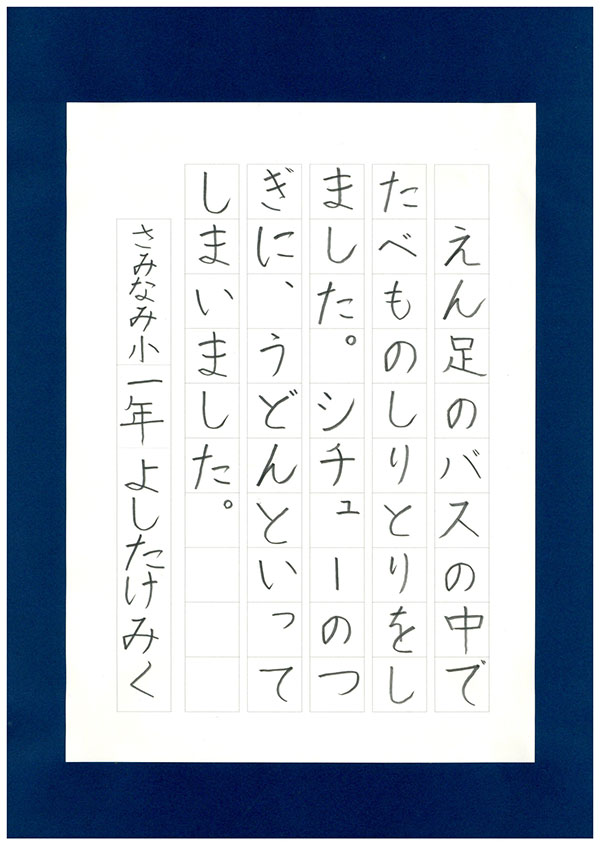 えん足のバスの中で
たべものしりとりをし
ました。シチューのつ
ぎに、うどんといって
しまいました。
さみなみ小 一年 よしたけみく